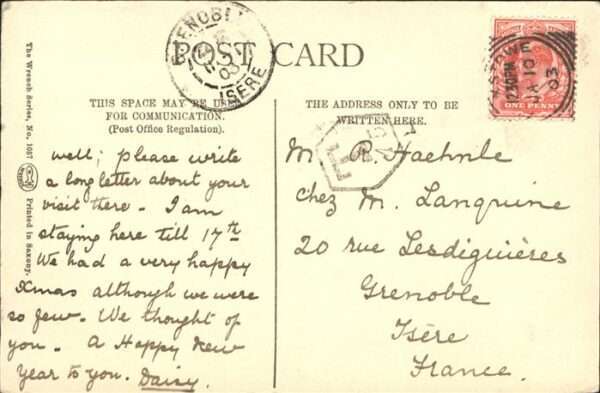 POST CARD
GRENOBLE
03
ISERE
2.30PM
JA 10
03
ONE PENNY
THIS SPACE MAY BE USED
FOR COMMUNICATION.
(Post Office Regulation).
THE ADDRESS ONLY TO BE
WRITTEN HERE.
well; please write
a long letter about your
visit there. I am
staying here till 17th
We had a very happy
Xmas although we were
so few. We thought of
you. A Happy New
Year to you. Daisy.
M R. Haehnle
chez M. Lanquine
20 rue Lesdiguières
Grenoble
Isère
France.
The Wrench Series, No. 1097
Printed in Saxony.